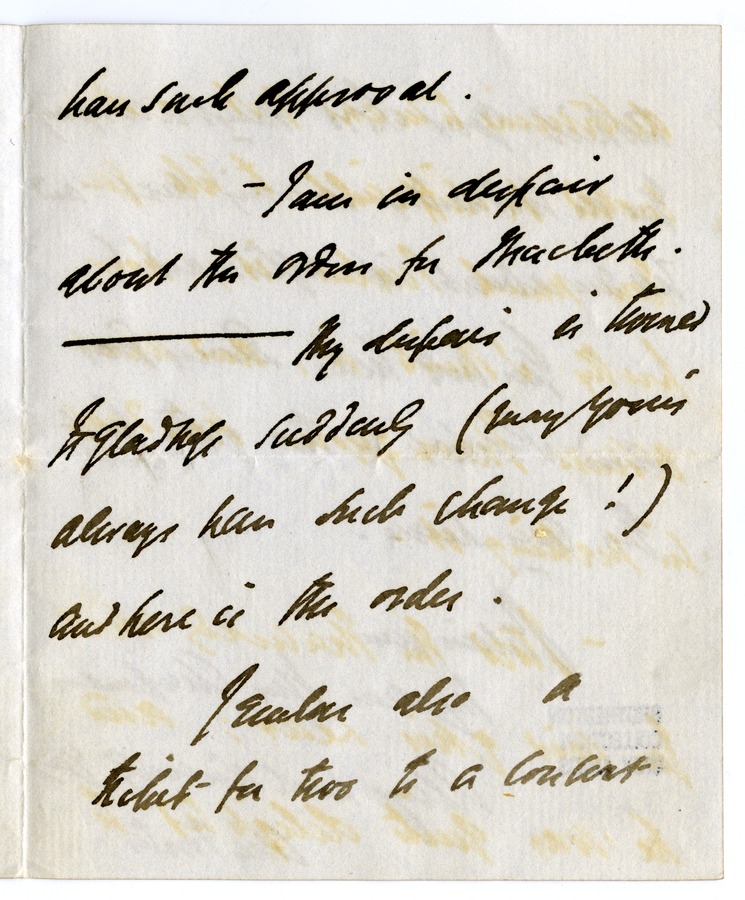 have such approval.
– I am in despair
about the order for Macbeth.
——— My despair is turned
to gladness suddenly (may yours
always have such change!)
and here is the order.
I enclose also a
ticket for two to a concert